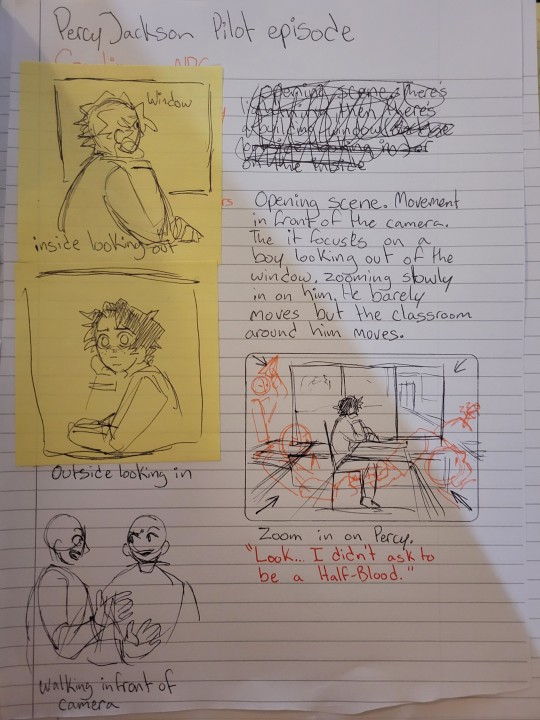 Percy Jackson Pilot episode
Window
inside looking out
Outside looking in
Walking infront of
camera
opening scene. There's
lightning then there's
Opening scene. Movement
in front of the camera.
The it focusts on a
boy looking out of the
window, zooming slowly
in on him. He barely
moves but the classroom
around him moves.
Zoom in on Percy.
"Look... I didn't ask to
be a Half-Blood."